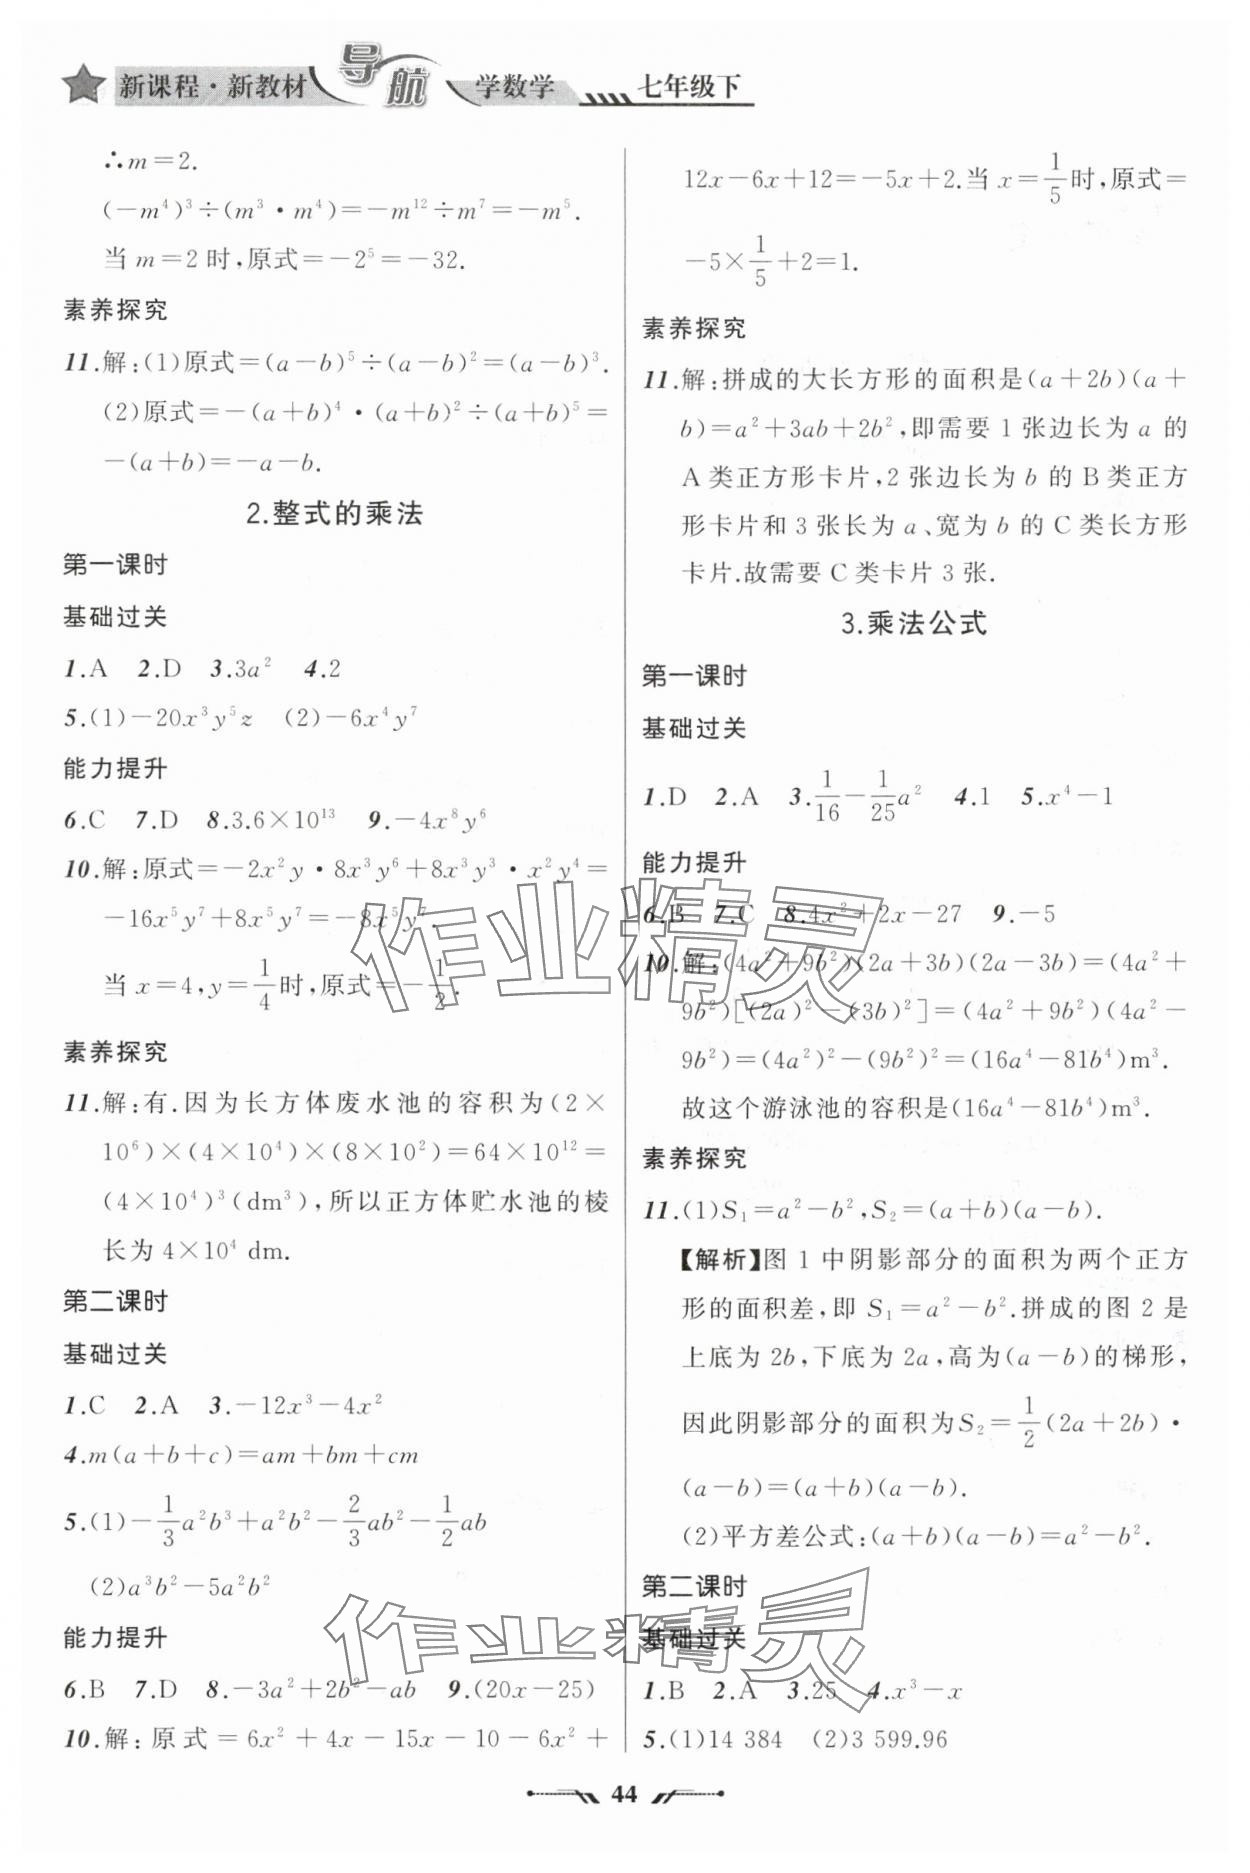 新课程·新教材 导航 学数学 七年级下
∴m=2.
(-m⁴)³÷(m³·m⁴)=-m¹²÷m⁷=-m⁵.
当 m=2 时,原式=-2⁵=-32.
素养探究
11.解:(1)原式=(a-b)⁵÷(a-b)²=(a-b)³.
(2)原式=-(a+b)⁴·(a+b)²÷(a+b)⁵=
-(a+b)=-a-b.
2.整式的乘法
第一课时
基础过关
1.A 2.D 3.3a² 4.2
5.(1)-20x³y⁵z (2)-6x⁴y⁷
能力提升
6.C 7.D 8.3.6×10¹³ 9.-4x⁸y⁶
10.解:原式=-2x²y·8x³y⁶+8x³y³·x²y⁴=
-16x⁵y⁷+8x⁵y⁷=-8x⁵y⁷.
当 x=4,y=1/4时,原式=-1/2.
素养探究
11.解:有.因为长方体废水池的容积为(2×
10⁶)×(4×10⁴)×(8×10²)=64×10¹²=
(4×10⁴)³(dm³),所以正方体贮水池的棱
长为 4×10⁴ dm.
第二课时
基础过关
1.C 2.A 3.-12x³-4x²
4.m(a+b+c)=am+bm+cm
5.(1)-1/3a²b³+a²b²-2/3ab²-1/2ab
(2)a³b²-5a²b²
能力提升
6.B 7.D 8.-3a²+2b²-ab 9.(20x-25)
10.解:原式=6x²+4x-15x-10-6x²+
12x-6x+12=-5x+2.当 x=1/5时,原式=
-5×1/5+2=1.
素养探究
11.解:拼成的大长方形的面积是(a+2b)(a+
b)=a²+3ab+2b²,即需要 1 张边长为 a 的
A 类正方形卡片,2 张边长为 b 的 B 类正方
形卡片和 3 张长为 a、宽为 b 的 C 类长方形
卡片.故需要 C 类卡片 3 张.
3.乘法公式
第一课时
基础过关
1.D 2.A 3.1/16-1/25a² 4.1 5.x⁴-1
能力提升
6.B 7.C 8.4x²+2x-27 9.-5
10.解:(4a²+9b²)(2a+3b)(2a-3b)=(4a²+
9b²)[(2a)²-(3b)²]=(4a²+9b²)(4a²-
9b²)=(4a²)²-(9b²)²=(16a⁴-81b⁴)m³.
故这个游泳池的容积是(16a⁴-81b⁴)m³.
素养探究
11.(1)S₁=a²-b²,S₂=(a+b)(a-b).
【解析】图 1 中阴影部分的面积为两个正方
形的面积差,即 S₁=a²-b².拼成的图 2 是
上底为 2b,下底为 2a,高为(a-b)的梯形,
因此阴影部分的面积为S₂=1/2(2a+2b)·
(a-b)=(a+b)(a-b).
(2)平方差公式:(a+b)(a-b)=a²-b².
第二课时
基础过关
1.B 2.A 3.25 4.x³-x
5.(1)14 384 (2)3 599.96
44
作业精灵
作业精灵